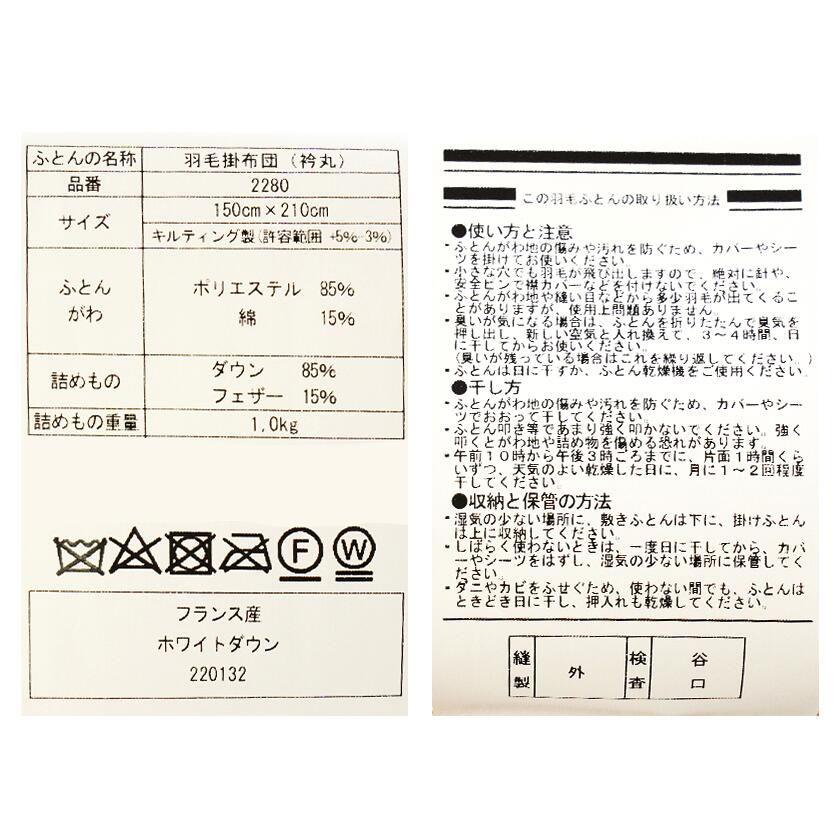 ふとんの名称 羽毛掛布団（衿丸）
品番 2280
サイズ 150cm×210cm
キルティング製（許容範囲 +5%-3%）
ふとん
がわ
ポリエステル 85%
綿 15%
詰めもの
ダウン 85%
フェザー 15%
詰めもの重量 1.0kg
F W
フランス産
ホワイトダウン
220132
この羽毛ふとんの取り扱い方法
●使い方と注意
・ふとんがわ地の傷みや汚れを防ぐため、カバーやシー
ツを掛けてお使いください。
・小さな穴でも羽毛が飛び出しますので、絶対に針や、
安全ピンで襟カバーなどを付けないでください。
・ふとんがわ地や縫い目などから多少羽毛が出てくるこ
とがありますが、使用上問題ありません。
・臭いが気になる場合は、ふとんを折りたたんで臭気を
押し出し、新しい空気と入れ換えて、3～4時間、日
に干してからお使いください。
（臭いが残っている場合はこれを繰り返してください。）
・ふとんは日に干すか、ふとん乾燥機をご使用ください。
●干し方
・ふとんがわ地の傷みや汚れを防ぐため、カバーやシー
ツでおおって干してください。
・ふとん叩き等であまり強く叩かないでください。強く
叩くとがわ地や詰め物を傷める恐れがあります。
・午前10時から午後3時ごろまでに、片面1時間くら
いずつ、天気のよい乾燥した日に、月に1～2回程度
干してください。
●収納と保管の方法
・湿気の少ない場所に、敷きふとんは下に、掛けふとん
は上に収納してください。
・しばらく使わないときは、一度日に干してから、カバ
ーやシーツをはずし、湿気の少ない場所に保管してく
ださい。
・ダニやカビをふせぐため、使わない間でも、ふとんは
ときどき日に干し、押入れも乾燥してください。
縫製 外 検査 谷口